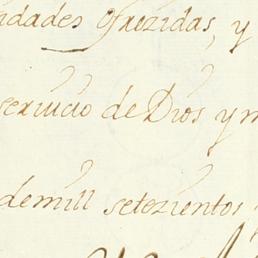 idades ofrezidas, y
seruicio de Dios y m
demill setezientos